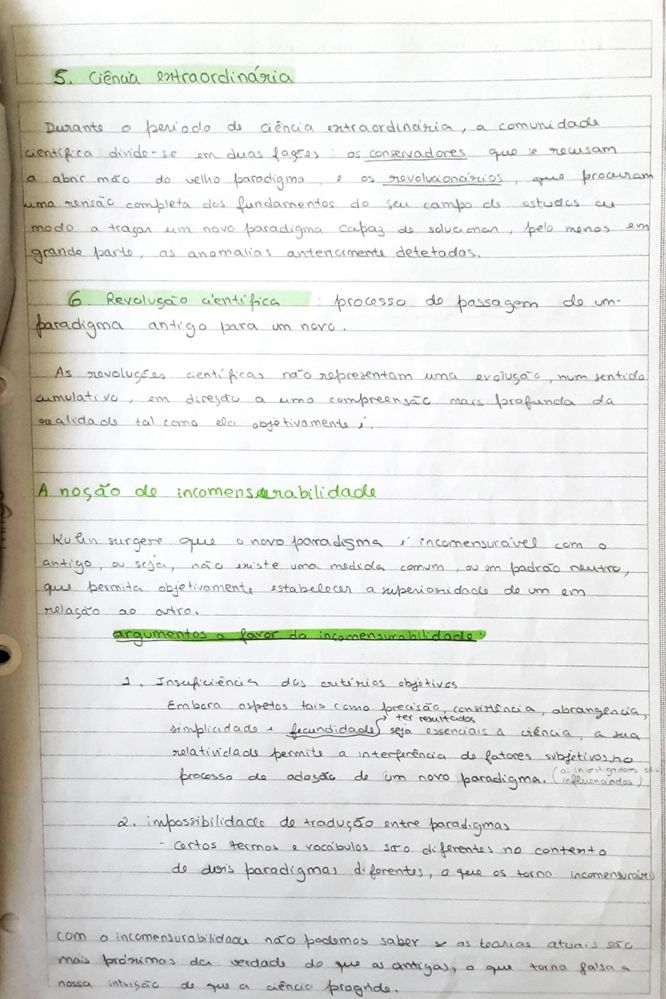 5. Ciência extraordinária
Durante o período de ciência extraordinária, a comunidade
científica divide-se em duas fações: os conservadores que se recusam
a abrir mão do velho paradigma, e os revolucionários, que procuram
uma revisão completa dos fundamentos do seu campo de estudos de
modo a traçar um novo paradigma capaz de solucionar, pelo menos em
grande parte, as anomalias anteriormente detetadas.
6. Revolução científica : processo de passagem de um
paradigma antigo para um novo.
As revoluções científicas não representam uma evolução, num sentido
cumulativo, em direção a uma compreensão mais profunda da
realidade tal como ela objetivamente é.
A noção de incomensurabilidade
Kuhn surgere que o novo paradigma é incomensurável com o
antigo, ou seja, não existe uma medida comum, ou um padrão neutro,
que permita objetivamente estabelecer a superioridade de um em
relação ao outro.
argumentos a favor da incomensurabilidade:
1. Insuficiência dos critérios objetivos
Embora aspetos tais como precisão, consistência, abrangência,
ter resultados
simplicidade e fecundidade seja essenciais à ciência, a sua
relatividade permite a interferência de fatores subjetivos no
processo de adoção de um novo paradigma. (os investigadores são
influenciados)
2. impossibilidade de tradução entre paradigmas
- certos termos e vocábulos são diferentes no contexto
de dois paradigmas diferentes, o que os torna incomensuráveis
com a incomensurabilidade não podemos saber se as teorias atuais são
mais próximas da verdade do que as antigas, o que torna falsa a
nossa intuição de que a ciência progride.